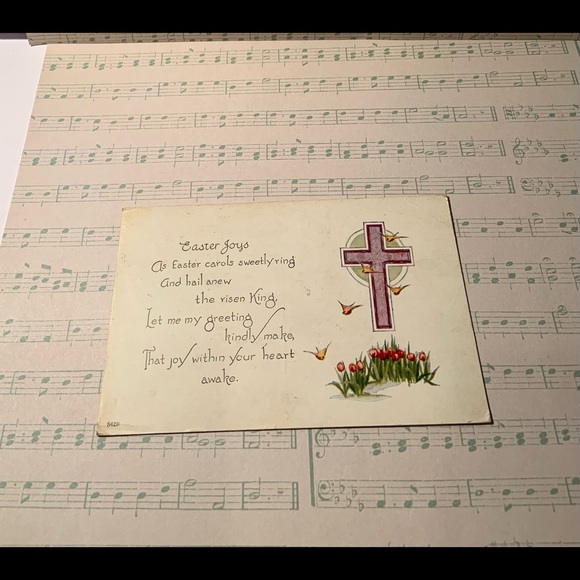 Easter Joys
As Easter carols sweetly ring
And hail anew
the risen King,
Let me my greeting
kindly make,
That joy within your heart
awake.